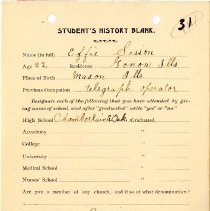 31
STUDENT'S HISTORY BLANK.
Name (in full) Effie Sisson
Age 22 Residence Genoa Ills
Place of Birth Mason Ills
Previous Occupation Telegraph Operator
Designate each of the following that you have attended by giving name of school, and after "graduated" write "yes" or "no"
High School Chamberlain S. Dak Graduated
Academy
College
University
Medical School
Nurses' School
Are you a member of any church, and if so of what denomination?